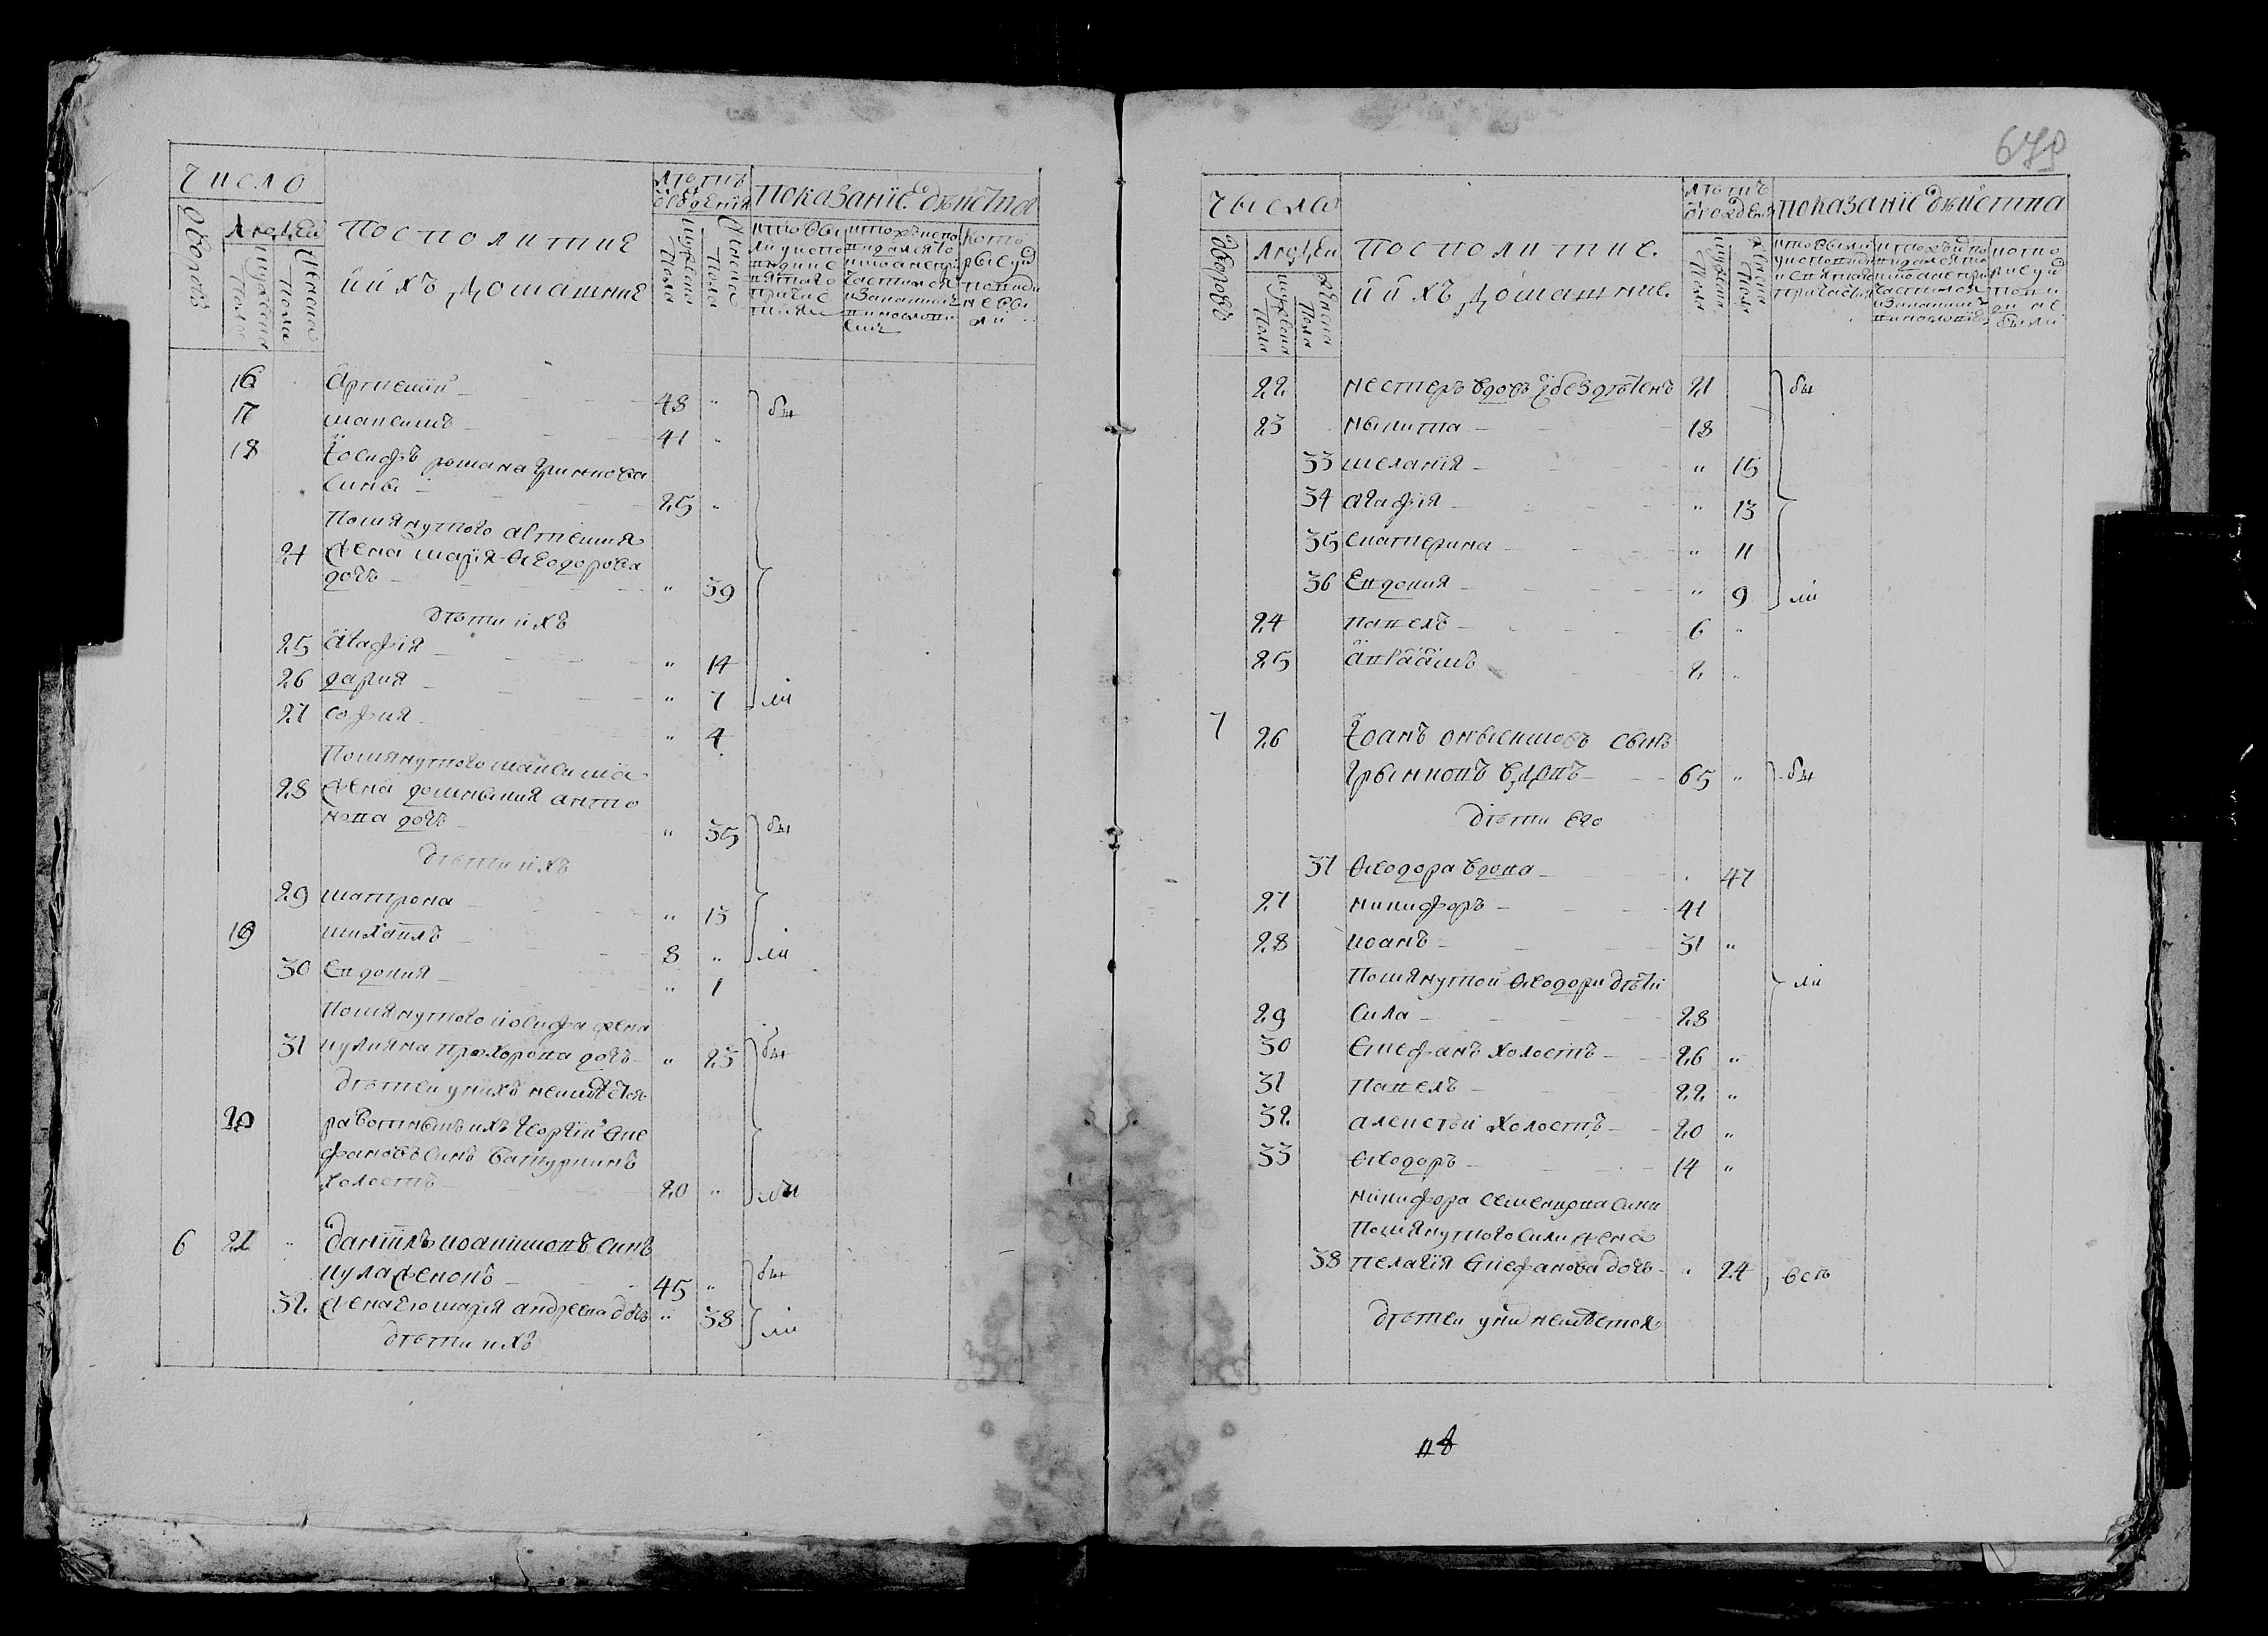 число
Дворовъ
Людей
мужеска Пола
Женска Пола
Посполитие
ийихъ Домашние
лѣтъ от рождения
мужеска Пола
Женска Пола
показание дѣйства
16 Артемий 48 "
бы
17 максимъ 41 "
18 Иосифъ романа Гринкова
сины 25 "
Помянутого артемия
24 жена мария Ѳеодорова
дочъ " 39
дѣти ихъ
25 Агафия " 14
26 дария " 7
ли
27 софия " 4
Помянутого максима
28 жена домникия анто
нова дочъ " 35
бы
дѣти ихъ
29 матрона " 13
19 михаилъ 8 "
ли
30 Евдокия " 1
Помянутого иосифа жена
31 иулияна прохорова дочъ " 23
бы
дѣтей унихъ неимѣется
20 работникъ ихъ Георгий сте
фановъ синъ Батуринъ
холостъ 20 "
ли
6 21 " Даниилъ иоакимовъ синъ
Кулаженокъ 45 "
бы
32 жена Его мария андреева дочъ " 38
ли
дѣти ихъ
679
Числа
Дворовъ
Людей
мужеска Пола
Женска Пола
Посполитие
ийихъ Домашние
лѣтъ от рождения
мужеска Пола
Женска Пола
показание дѣйства
22 нестеръ вдовъ бездѣтенъ 21
бы
23 никита 18
33 мелания " 15
34 Агафия " 13
35 екатерина " 11
36 Евдокия " 9
ли
24 павелъ 6 "
25 Авраамъ 2 "
7 26 Иоанъ онысимовъ сынъ
Грынковъ вдовъ 65 "
бы
дѣти его
37 Ѳеодора вдова " 47
27 никифоръ 41
28 иоанъ 31 "
Помянутой Ѳеодори дѣти
ли
29 Сила 28
30 Стефанъ холостъ 26 "
31 Павелъ 22 "
32 алексѣй холостъ 20 "
33 Ѳеодоръ 14 "
никифора семенцова сини
Помянутого сили жена
38 пелагия Стефанова дочъ " 24
дѣтей унихъ неимѣется